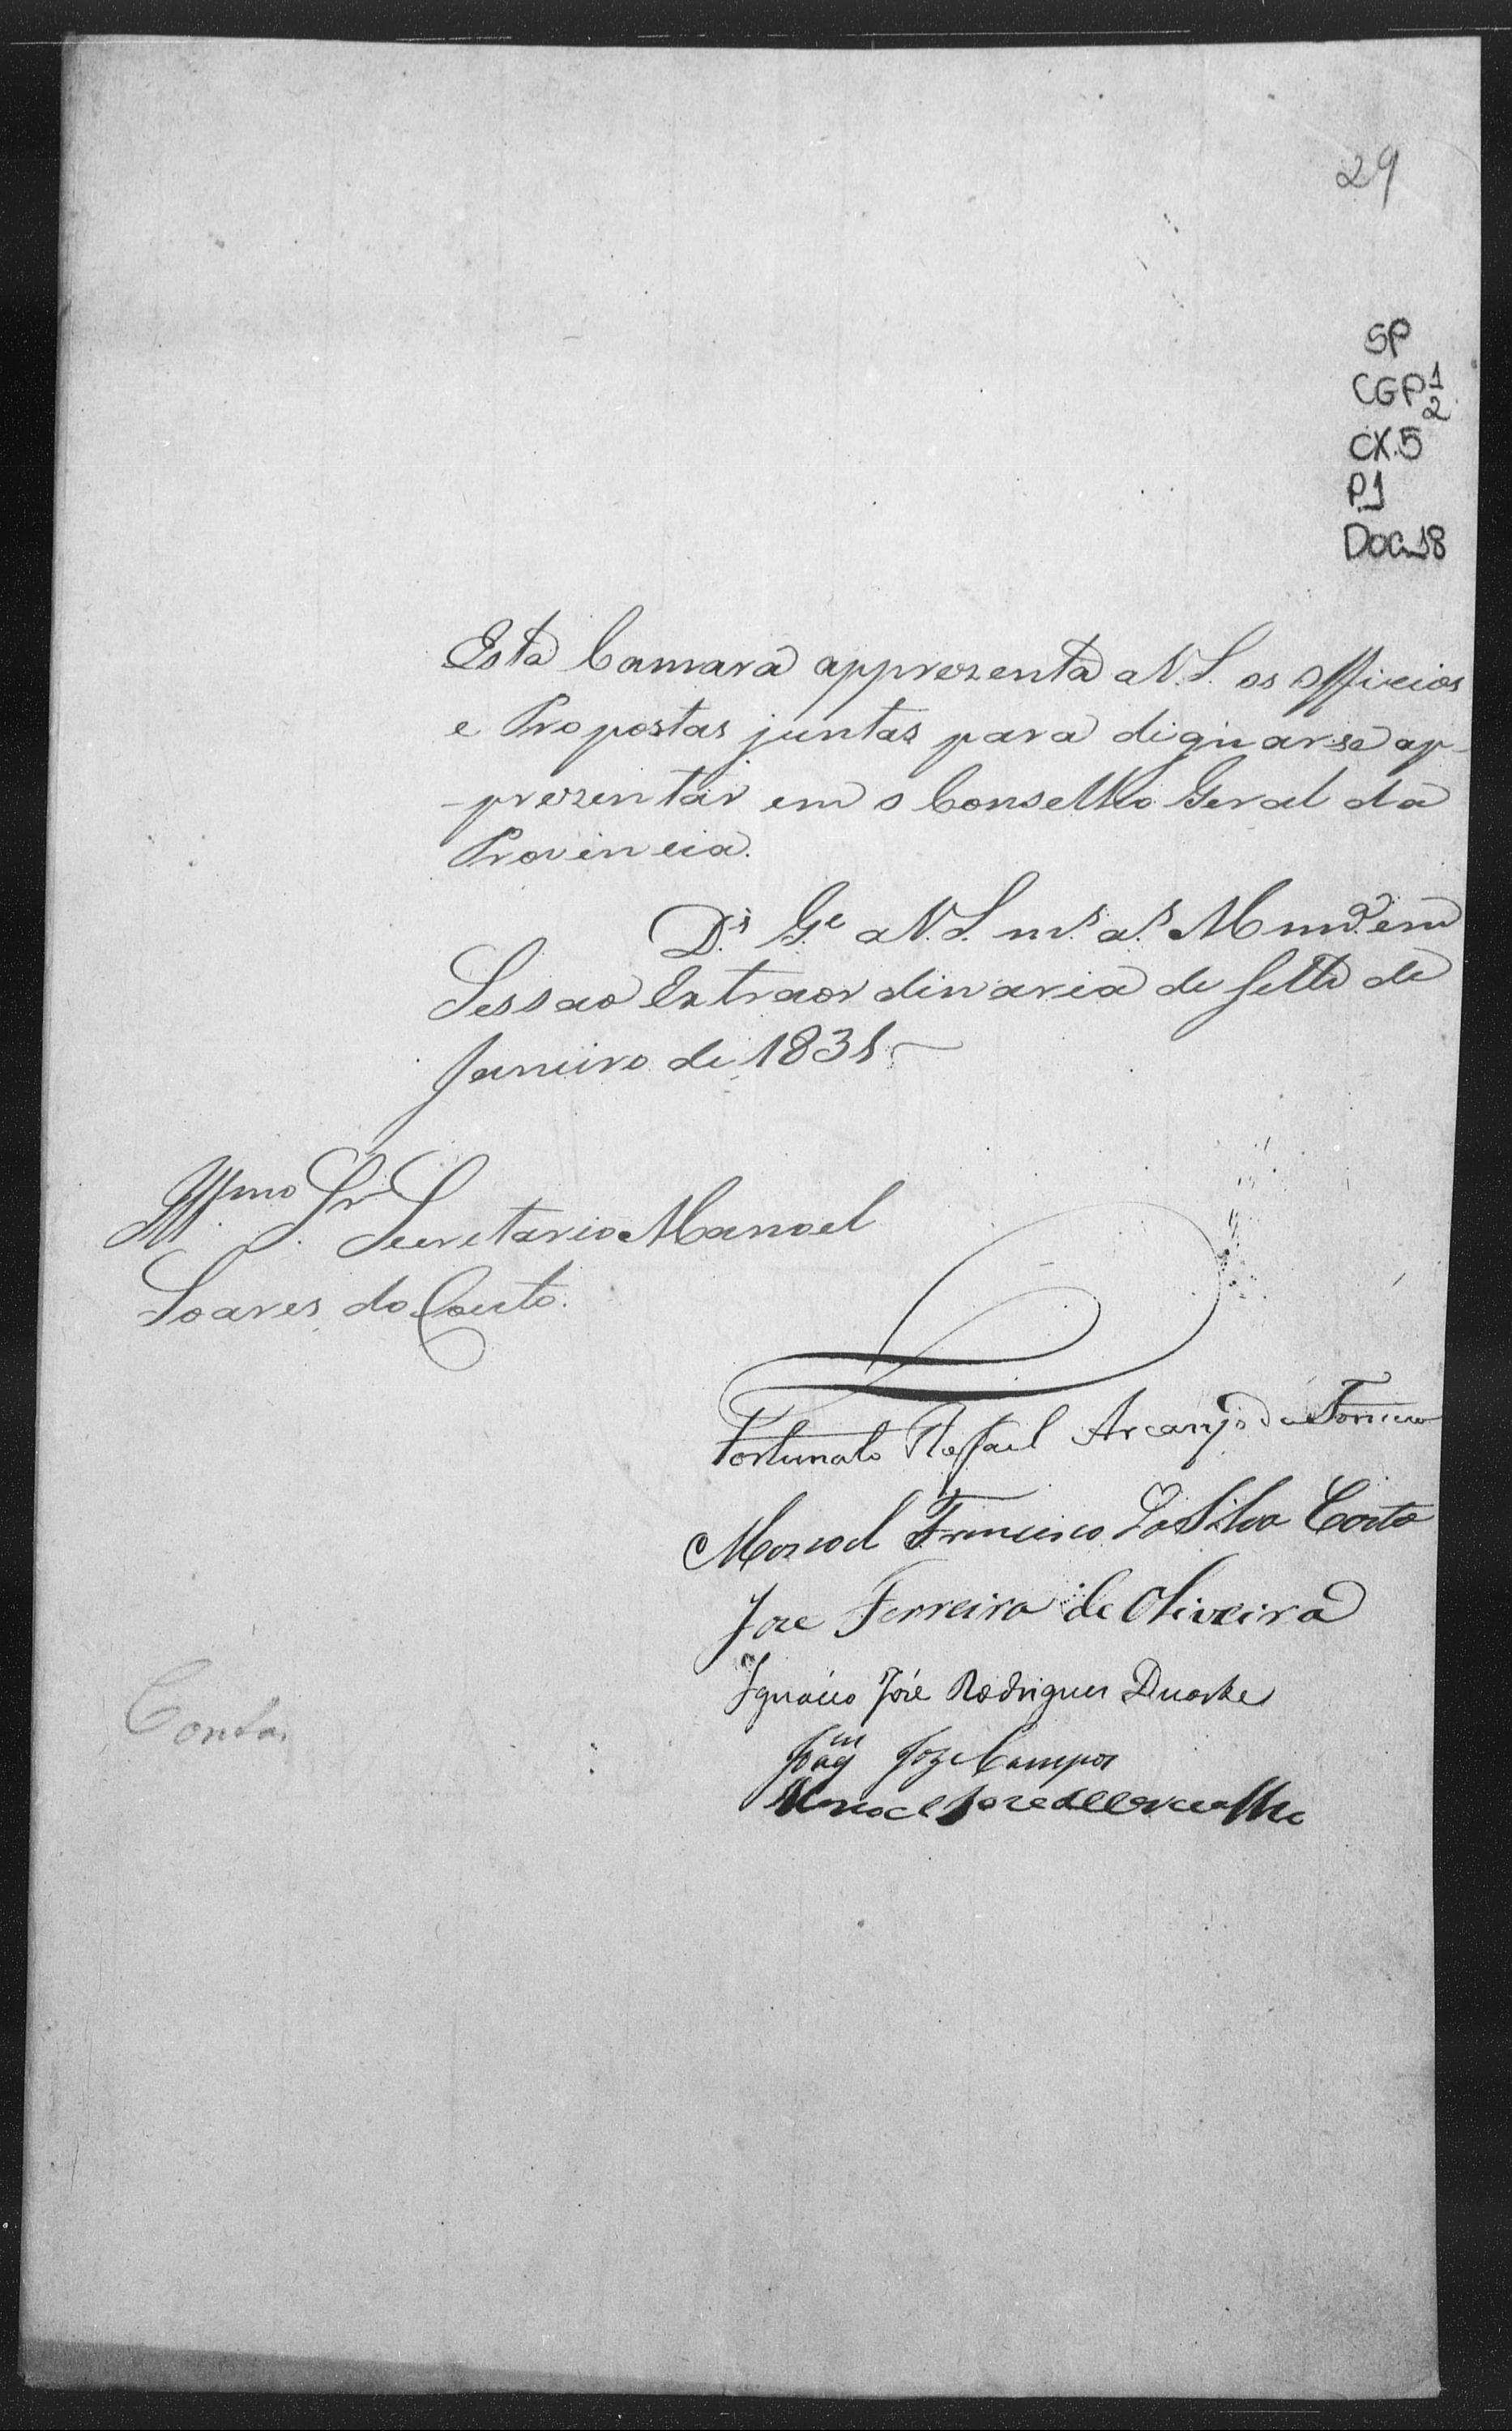 29
SP
CGP 1
2
CX.5
P1
Doc.18
Esta Camara apprezenta a V.S. os Officios
e Propostas juntas para dignarse ap-
-prezentar em o Conselho Geral da
Provincia.
D.s G.e a V.S. m.s a.s M mir.m em
Sessao Extraordinaria de sette de
Janeiro de 1831
Illmo Sr Secretario Manoel
Soares do Couto.
Fortunato Rafael Arcanjo da
Manoel Francisco da Silva Costa
Joze Ferreira de Oliveira
Ignacio José Rodrigues Duarte
Joaq.m Joze Campos
Manoel Joze de Carvalho
Conta